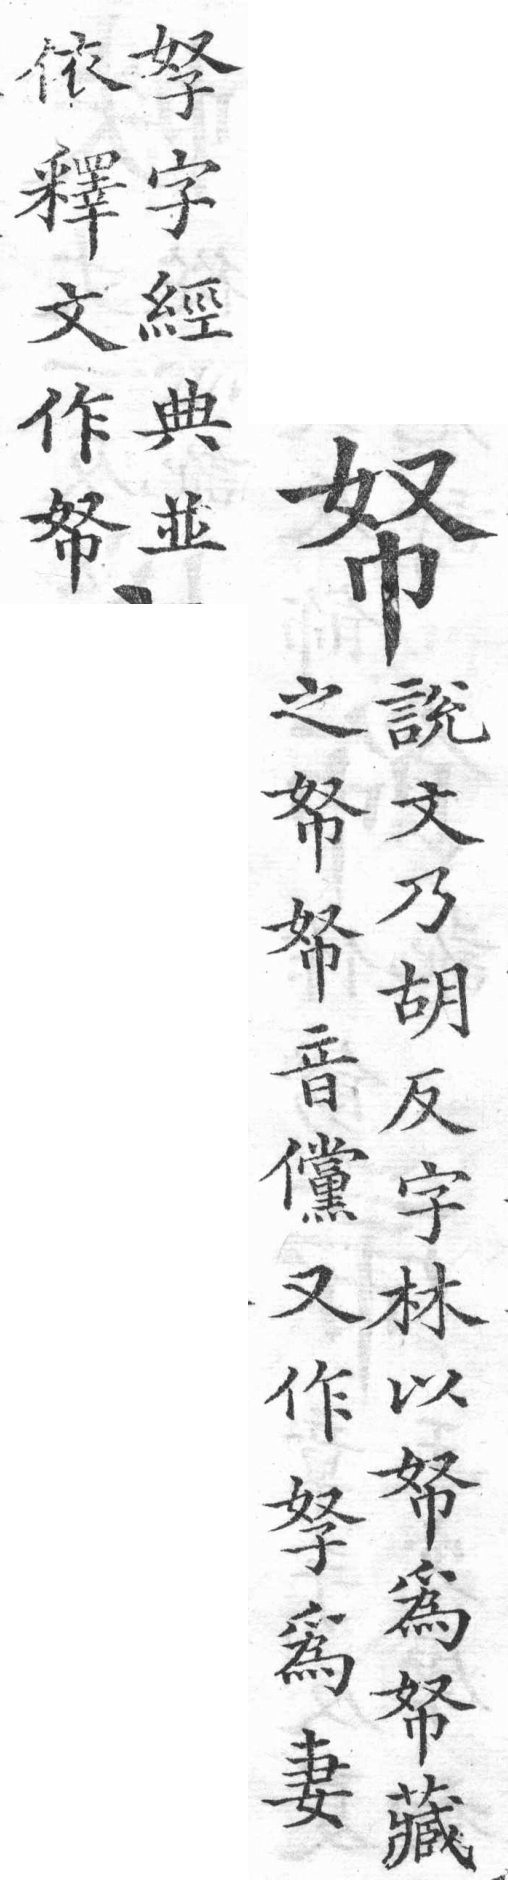 帑
說文乃胡反字林以帑爲帑藏
之帑帑音儻又作孥爲妻
孥字經典並
依釋文作帑